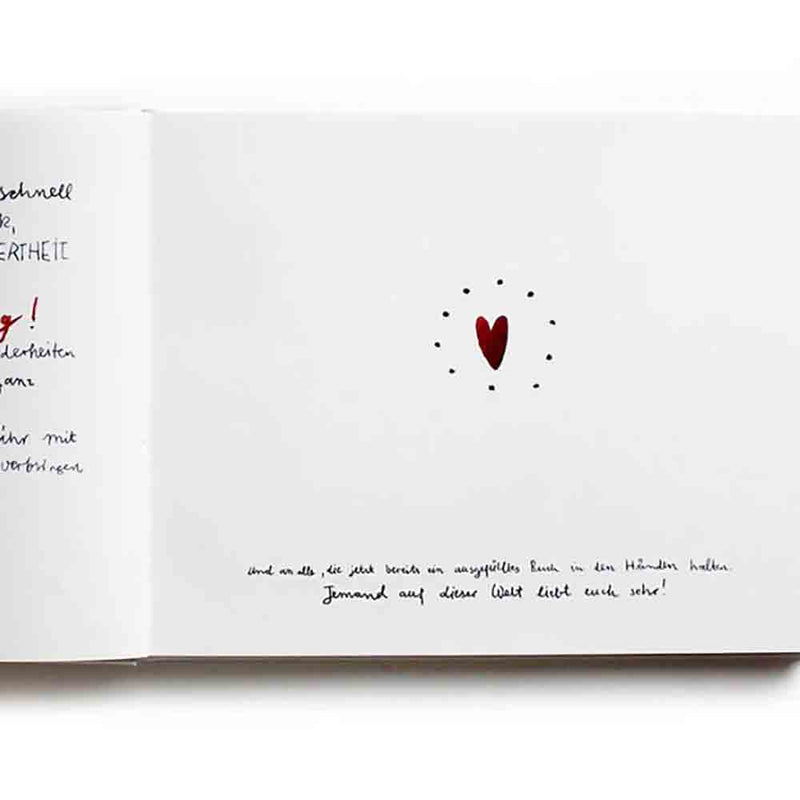 schnell
k,
ERTHEIT
g!
derheiten
ganz
ihr mit
verbringen
und an alle, die jetzt bereits ein ausgefülltes Buch in den Händen halten.
Jemand auf dieser Welt liebt euch sehr!